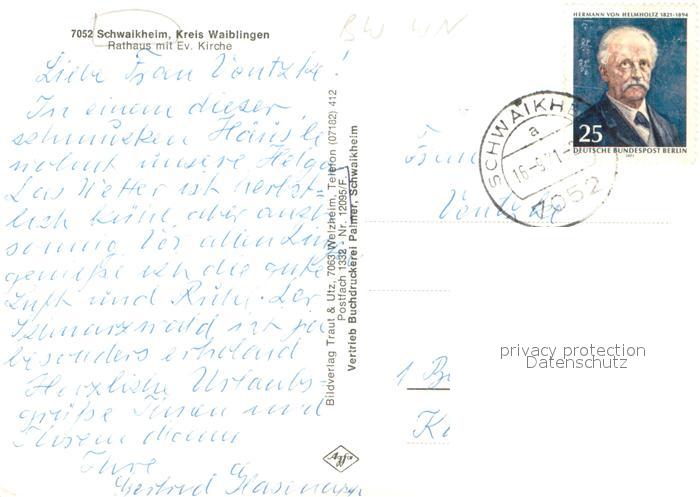 7052 Schwaikheim, Kreis Waiblingen
Rathaus mit Ev. Kirche
BW WN
Liebe Frau Vontzke!
In einem dieser
schmucken Häusle
wohnt unsere Helga
Das Wetter ist herbst-
lich kühl aber auch
sonnig. Vor allen Dingen
genieße ich die gute
Luft und Ruhe. Der
Schwarzwald ist ja
besonders erholend
Herzliche Urlaubs-
grüße Ihnen und
Ihrem
Ihre
Gertrud
Bildverlag Traut & Utz, 7063 Welzheim, Telefon (07182) 412
Postfach 1332 - Nr. 12095/F.
Vertrieb Buchdruckerei Palmer, Schwaikheim
Agfa
HERMANN VON HELMHOLTZ 1821-1894
25
DEUTSCHE BUNDESPOST BERLIN
1971
SCHWAIKHEIM
a
7052
Frau
1 Be
privacy protection
Datenschutz